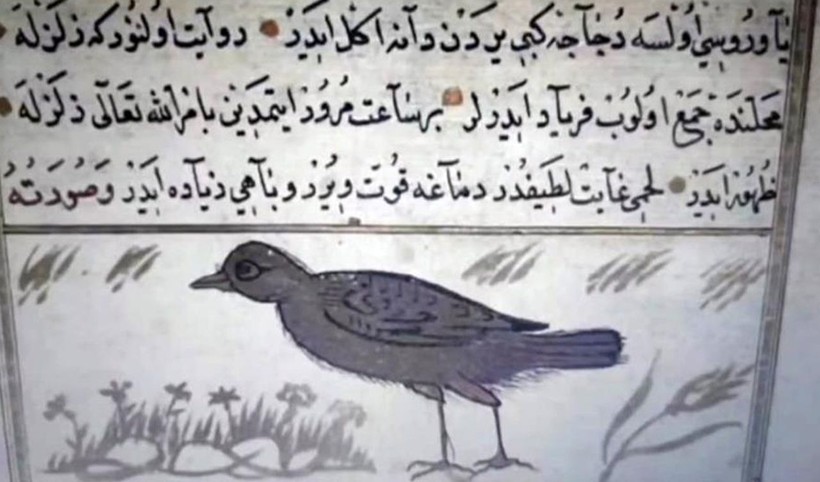 یاوروسی اولسه دجاجه کبی یردن دانه اکل ایدر دوایت اولنور که زلزله
محلنده جمع اولوب فریاد ایدرلر بر ساعت مرور ایتمدین بامر الله تعالی زلزله
ظهور ایدر لحمی غایت لطیفدر دماغه قوت ویرر و باهی زیاده ایدر وصورته